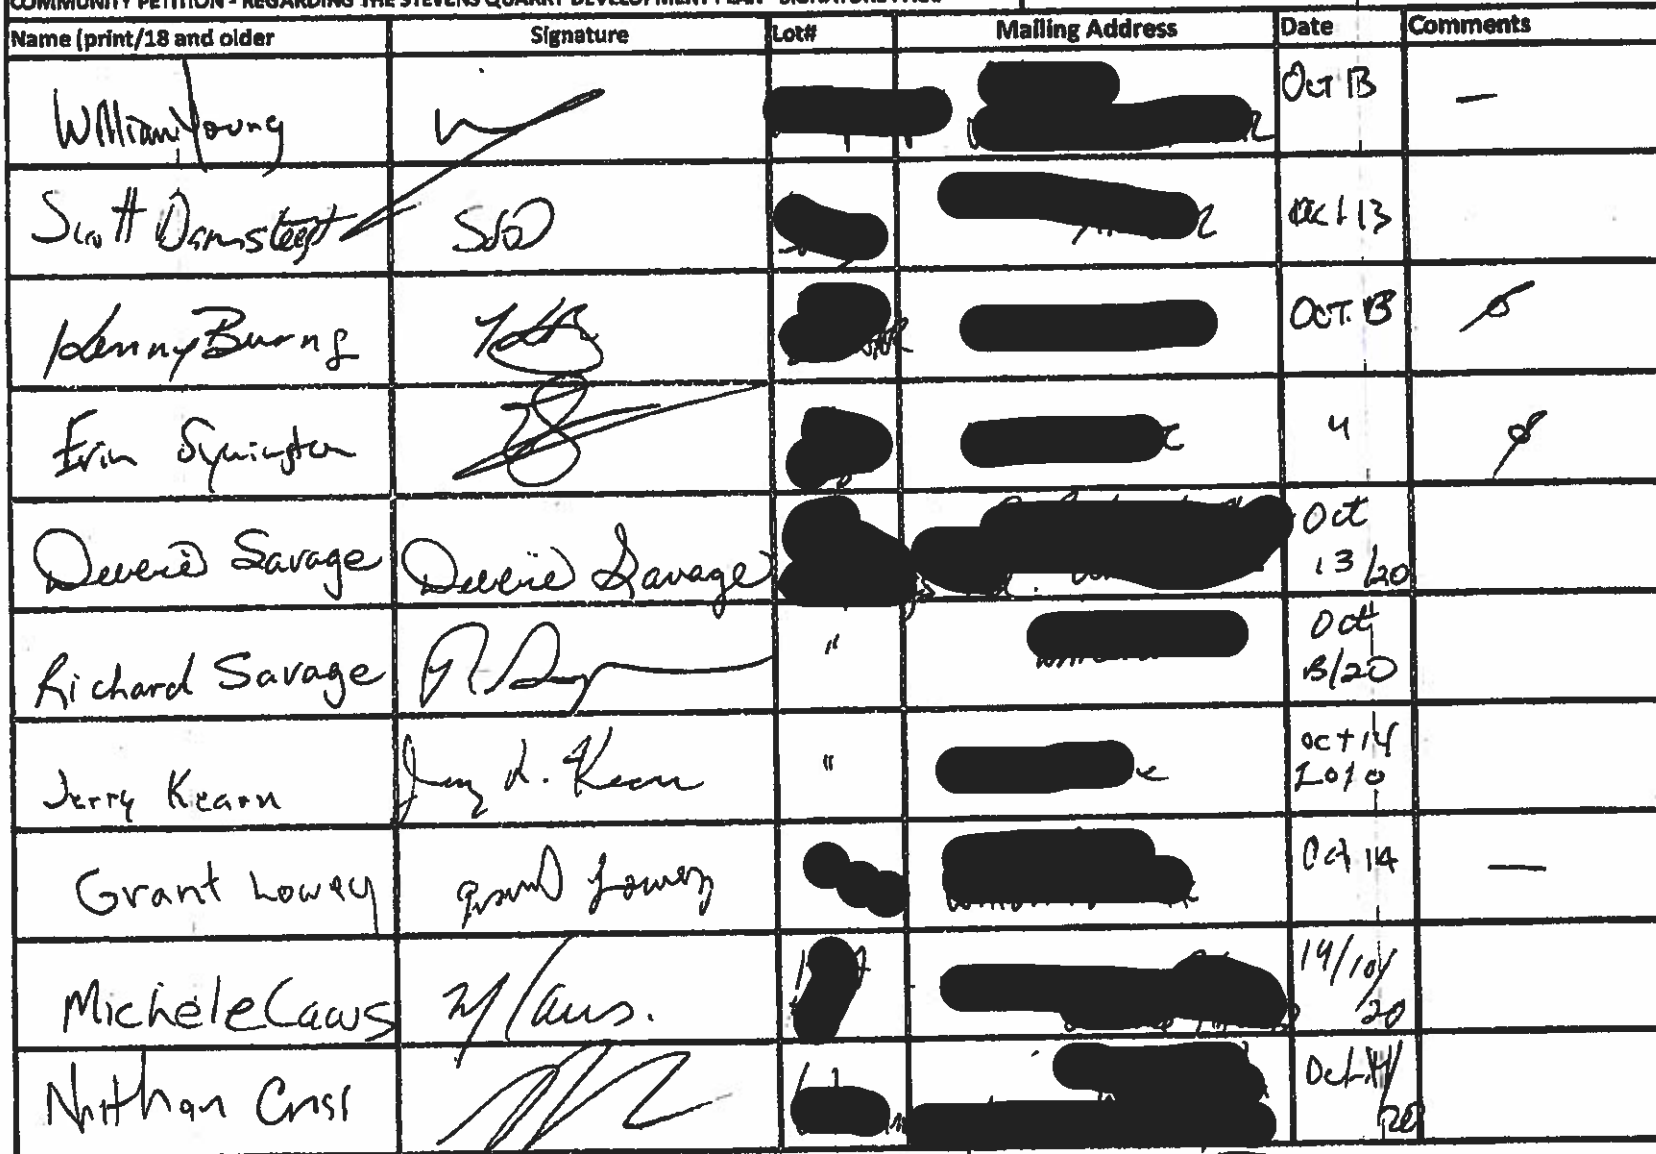 COMMUNITY PETITION - REGARDING THE STEVENS QUARRY DEVELOPMENT PLAN - SIGNATURE PAGE
Name (print/18 and older Signature Lot# Mailing Address Date Comments
William Young Oct 13 —
Scott SSD Oct 13
Kenny Burns Oct. 13
Erin Symington "
Savage Savage Oct
13/20
Richard Savage " Oct
13/20
Jerry Kearn Jerry L. Kearn " Oct 14
2020
Grant Lowey Grant Lowey Oct 14 —
Michele Caws M Caws. 14/10/
20
Nathan Oct 14/
20